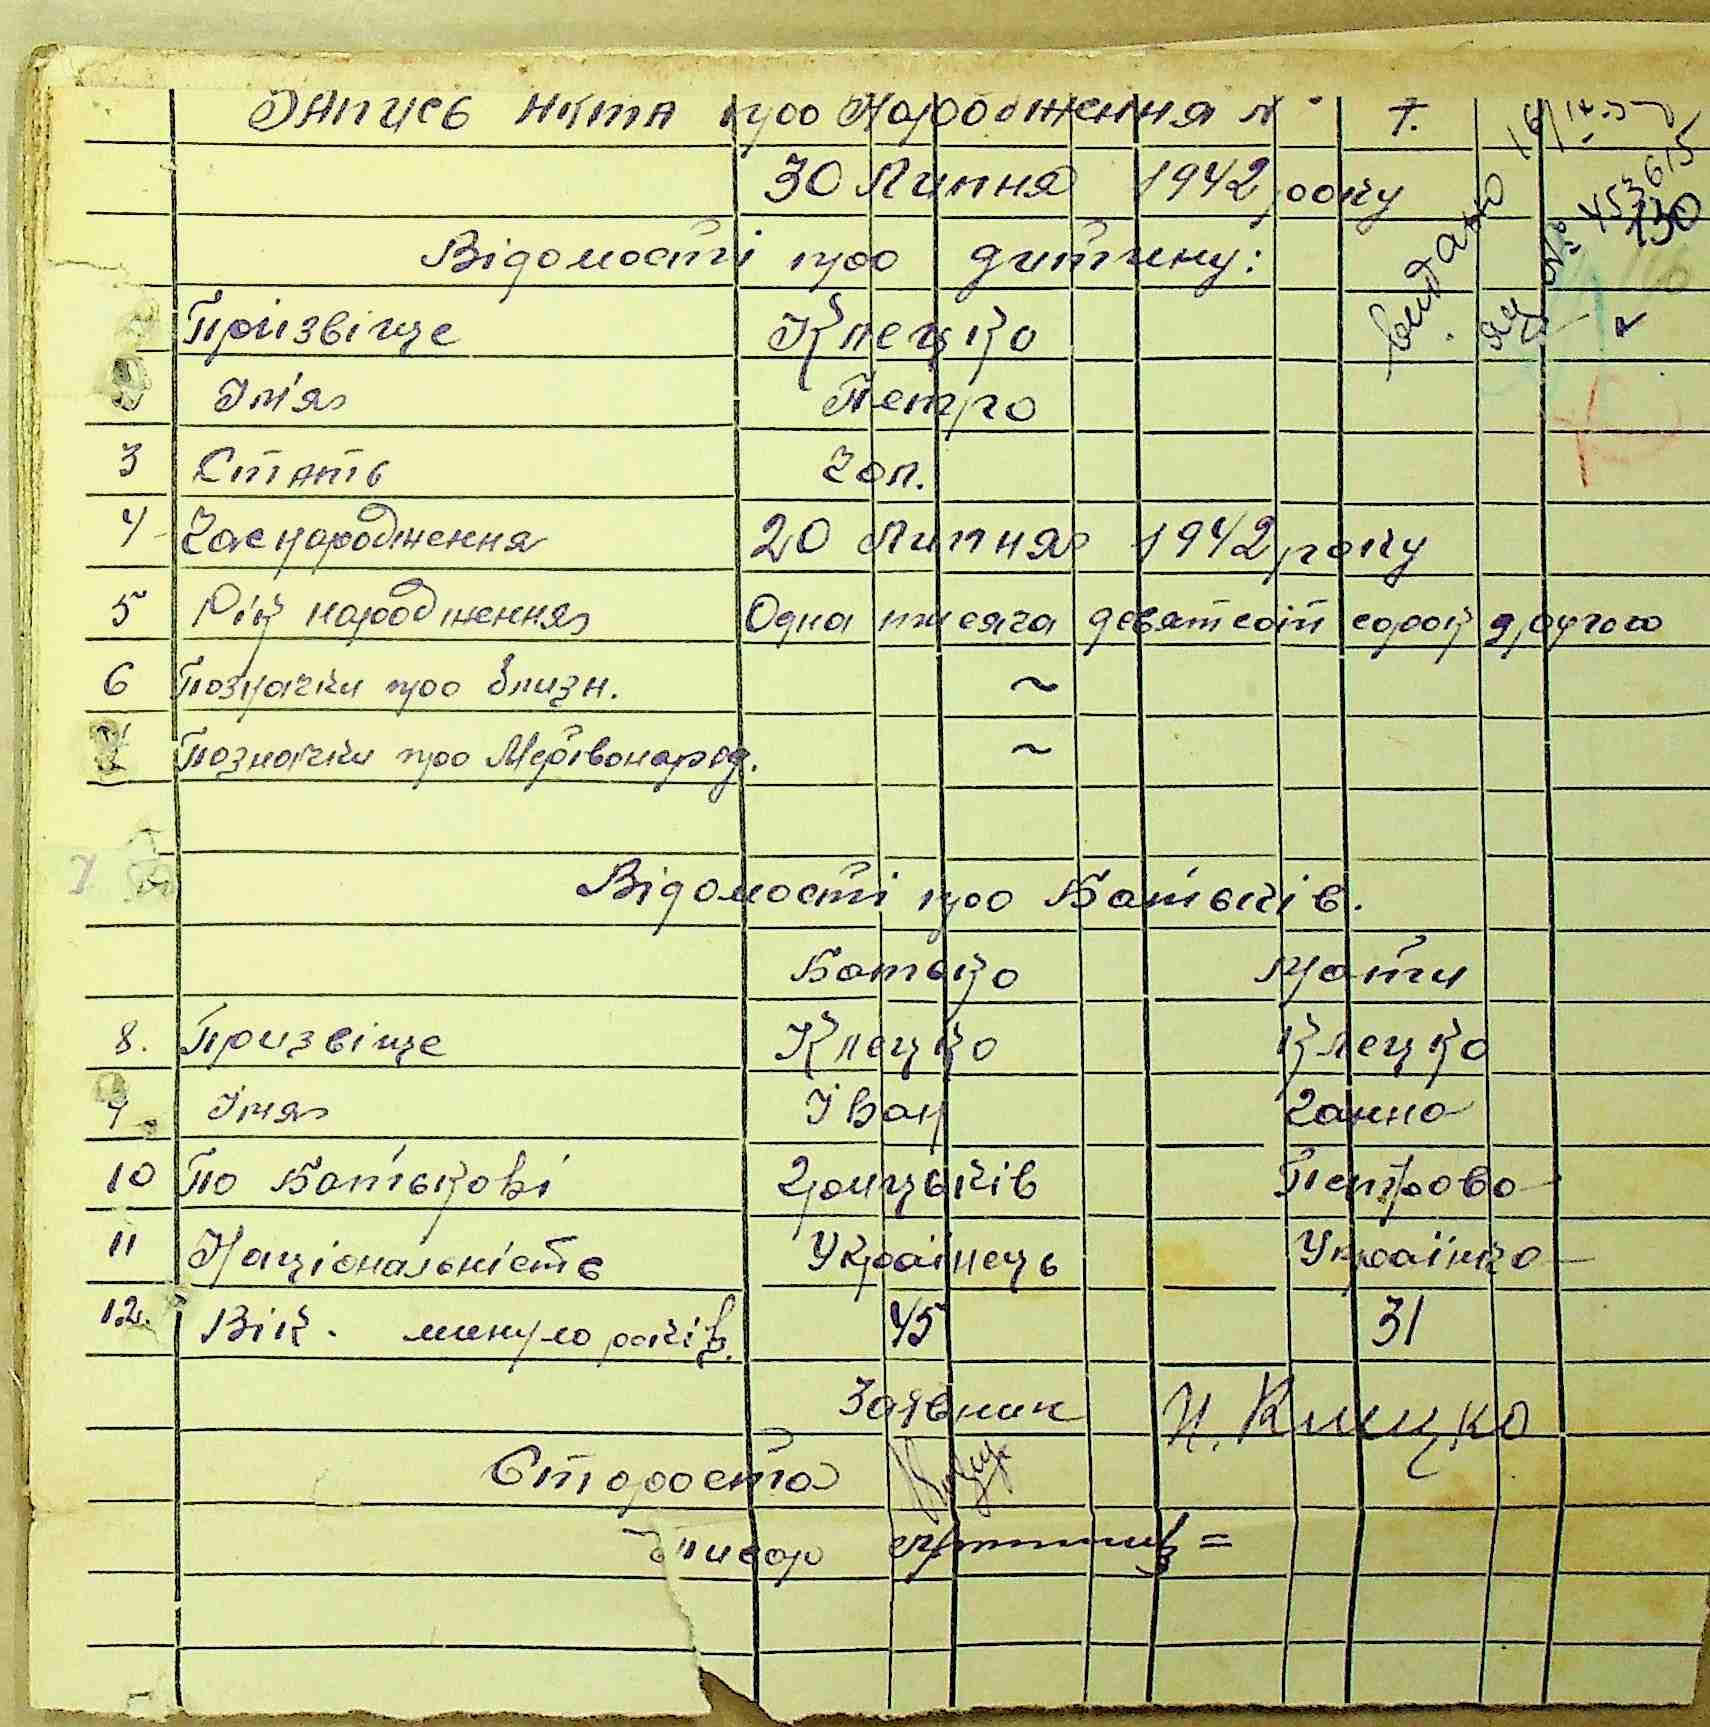 Запись Акта про Народження № 7.
30 Липня 1942 року
Відомості про дитину:
Прізвіще Клецко
Ім'я Петро
3 Стать Чол.
4 Час народження 20 Липня 1942 року
5 Рік народження Одна тисяча девятсот сорок другого
6 Позначки про близн. ~
7 Позначки про Мертвонарод. ~
7
Відомості про Батьків.
Батько Мати
8. Призвіще Клецко Клецко
9. Імя Іван Ганна
10 По Батькові Грицьків Петрова
11 Національність Українець Українка
12. Вік. минуло років. 45 31
Заявник И. Клецко
Староста
Писар
видано
№ 453615
130